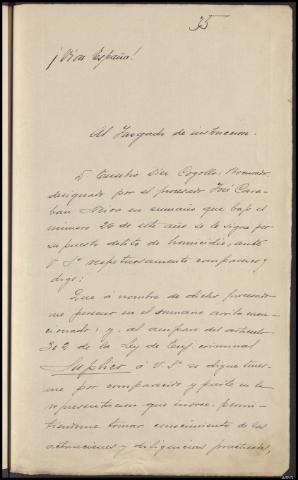 35
¡Viva España!
Al Juzgado de instruccion.
D. Eusebio Diez Cogollos, Abogado,
designado por el procesado José
en sumario que bajo el
número 26 de este año se le sigue por
supuesto delito de homicidio, ante
V.S. respetuosamente comparece y
digo:
Que á nombre de dicho procesado
me persono en el sumario arriba men-
cionado; y, al amparo del articulo
302 de la Ley de Enj. criminal
Suplico á V.S. se digne tener-
me por comparecido y parte en la
representacion que invoco, permi-
tiendome tomar conocimiento de las
actuaciones y diligencias practicadas,